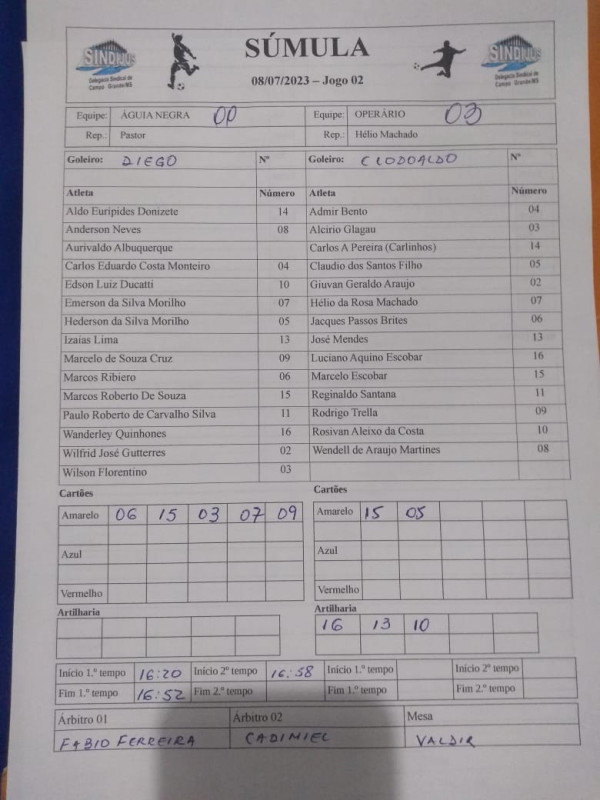 SINDIJUS
Delegacia Sindical de
Campo Grande/MS
SÚMULA
08/07/2023 – Jogo 02
SINDIJUS
Delegacia Sindical de
Campo Grande/MS
Equipe: ÁGUIA NEGRA 00 Equipe: OPERÁRIO 03
Rep.: Pastor Rep.: Hélio Machado
Goleiro: DIEGO Nº Goleiro: CLODOALDO Nº
Atleta Número Atleta Número
Aldo Euripides Donizete 14 Admir Bento 04
Anderson Neves 08 Alcirio Glagau 03
Aurivaldo Albuquerque Carlos A Pereira (Carlinhos) 14
Carlos Eduardo Costa Monteiro 04 Claudio dos Santos Filho 05
Edson Luiz Ducatti 10 Giuvan Geraldo Araujo 02
Emerson da Silva Morilho 07 Hélio da Rosa Machado 07
Hederson da Silva Morilho 05 Jacques Passos Brites 06
Izaias Lima 13 José Mendes 13
Marcelo de Souza Cruz 09 Luciano Aquino Escobar 16
Marcos Ribiero 06 Marcelo Escobar 15
Marcos Roberto De Souza 15 Reginaldo Santana 11
Paulo Roberto de Carvalho Silva 11 Rodrigo Trella 09
Wanderley Quinhones 16 Rosivan Aleixo da Costa 10
Wilfrid José Gutterres 02 Wendell de Araujo Martines 08
Wilson Florentino 03
Cartões Cartões
Amarelo 06 15 03 07 09 Amarelo 15 05
Azul Azul
Vermelho Vermelho
Artilharia Artilharia
16 13 10
Início 1.º tempo 16:20 Início 2º tempo 16:58 Início 1.º tempo Início 2º tempo
Fim 1.º tempo 16:52 Fim 2.º tempo Fim 1.º tempo Fim 2.º tempo
Árbitro 01 Árbitro 02 Mesa
FABIO FERREIRA CADIMIEL VALDIR